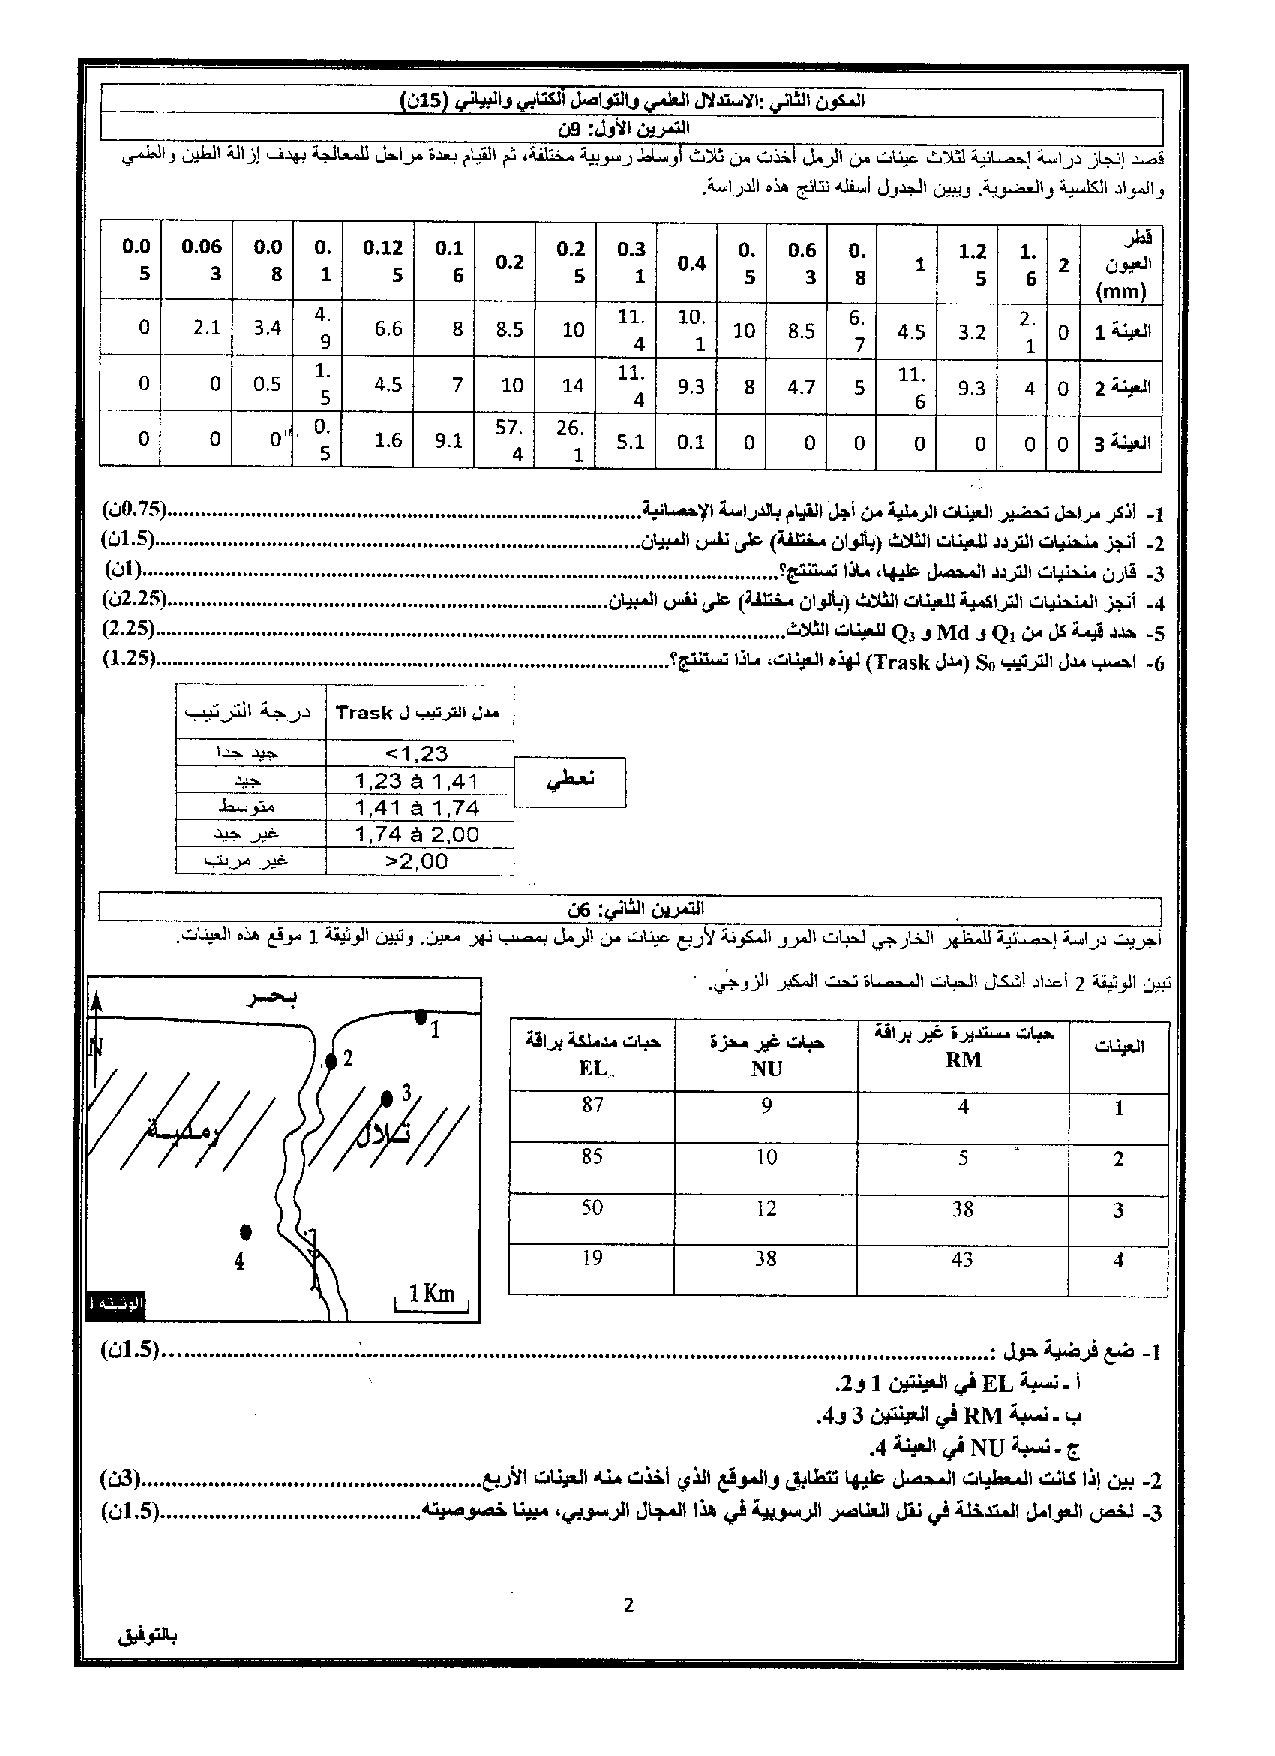 المكون الثاني :الاستدلال العلمي والتواصل الكتابي والبياني (15ن)
التمرين الأول: 9ن
قصد إنجاز دراسة إحصائية لثلاث عينات من الرمل أخذت من ثلاث أوساط رسوبية مختلفة، ثم القيام بعدة مراحل للمعالجة بهدف إزالة الطين والطمي
والمواد الكلسية والعضوية. ويبين الجدول أسفله نتائج هذه الدراسة.
قطر العيون (mm) 2 1.6 1.25 1 0.8 0.63 0.5 0.4 0.31 0.25 0.2 0.16 0.125 0.1 0.08 0.063 0.05
العينة 1 0 2.1 3.2 4.5 6.7 8.5 10 10.1 11.4 10 8.5 8 6.6 4.9 3.4 2.1 0
العينة 2 0 4 9.3 11.6 5 4.7 8 9.3 11.4 14 10 7 4.5 1.5 0.5 0 0
العينة 3 0 0 0 0 0 0 0 0.1 5.1 26.1 57.4 9.1 1.6 0.5 0 0 0
1- أذكر مراحل تحضير العينات الرملية من أجل القيام بالدراسة الإحصائية......(0.75ن)
2- أنجز منحنيات التردد للعينات الثلاث (بألوان مختلفة) على نفس المبيان......(1.5ن)
3- قارن منحنيات التردد المحصل عليها، ماذا تستنتج؟......(1ن)
4- أنجز المنحنيات التراكمية للعينات الثلاث (بألوان مختلفة) على نفس المبيان......(2.25ن)
5- حدد قيمة كل من Q1 و Md و Q3 للعينات الثلاث......(2.25)
6- احسب مدل الترتيب S0 (مدل Trask) لهذه العينات، ماذا تستنتج؟......(1.25)
مدل الترتيب ل Trask درجة الترتيب
<1,23 جيد جدا
نعطي
1,23 à 1,41 جيد
1,41 à 1,74 متوسط
1,74 à 2,00 غير جيد
>2,00 غير مرتب
التمرين الثاني: 6ن
أجريت دراسة إحصائية للمظهر الخارجي لحبات المرو المكونة لأربع عينات من الرمل بمصب نهر معين. وتبين الوثيقة 1 موقع هذه العينات.
تبين الوثيقة 2 أعداد أشكال الحبات المحصاة تحت المكبر الزوجي.
العينات حبات مستديرة غير براقة RM حبات غير محزة NU حبات مدملكة براقة EL
1 4 9 87
2 5 10 85
3 38 12 50
4 43 38 19
بحر
N
1
2
3
تلال رملية
4
1 Km
الوثيقة 1
1- ضع فرضية حول :......(1.5ن)
أ - نسبة EL في العينتين 1 و2.
ب - نسبة RM في العينتين 3 و4.
ج - نسبة NU في العينة 4.
2- بين إذا كانت المعطيات المحصل عليها تتطابق والموقع الذي أخذت منه العينات الأربع......(3ن)
3- لخص العوامل المتدخلة في نقل العناصر الرسوبية في هذا المجال الرسوبي، مبينا خصوصيته......(1.5ن)
2
بالتوفيق